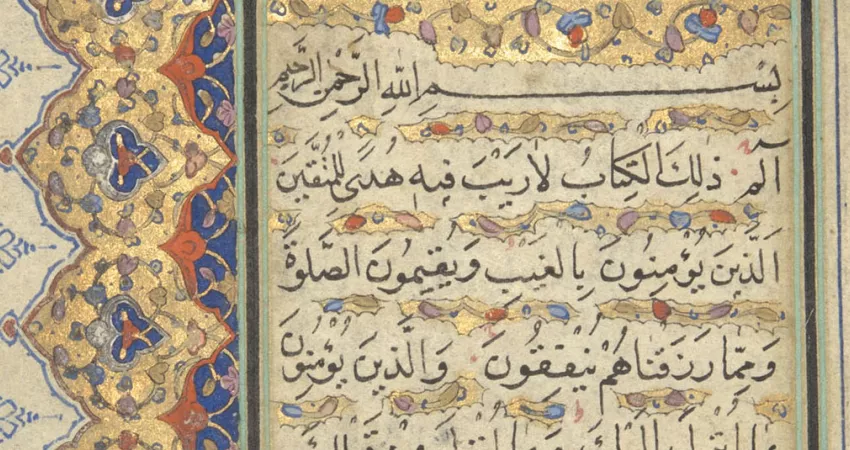 بِسْمِ اللهِ الرَّحْمٰنِ الرَّحِيمِ
الٓمٓ ذٰلِكَ الْكِتَابُ لَا رَيْبَ فِيهِ هُدًى لِلْمُتَّقِينَ
الَّذِينَ يُؤْمِنُونَ بِالْغَيْبِ وَيُقِيمُونَ الصَّلٰوةَ
وَمِمَّا رَزَقْنَاهُمْ يُنْفِقُونَ وَالَّذِينَ يُؤْمِنُونَ